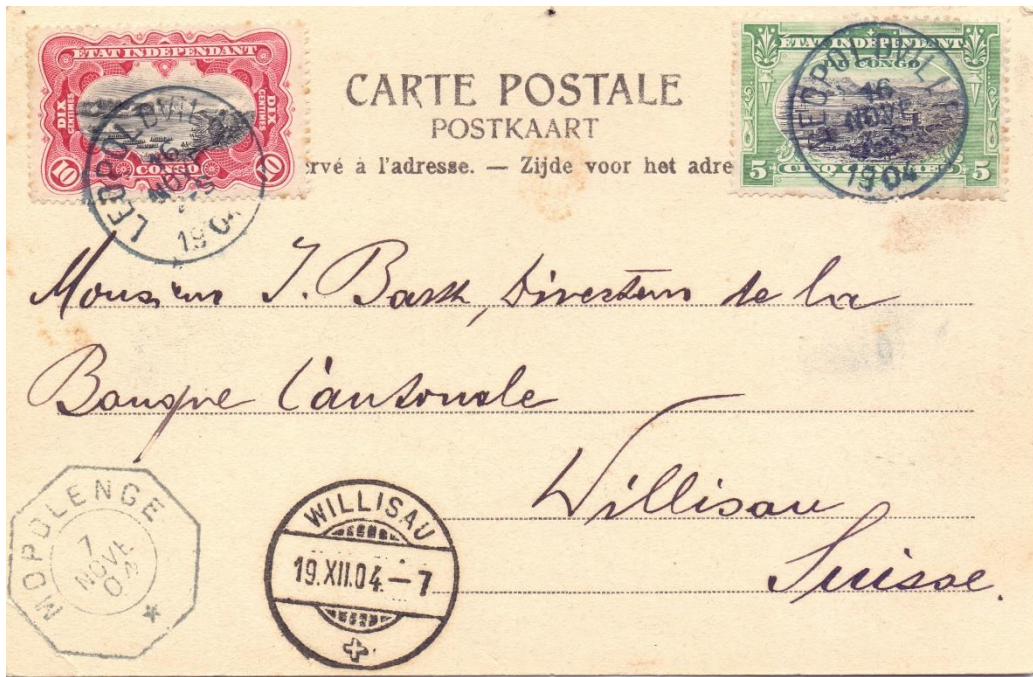 ETAT INDÉPENDANT
DIX CENTIMES
DIX CENTIMES
10 CONGO 10
LEOPOLDVILLE
16
NOVE
1904
CARTE POSTALE
POSTKAART
rvé à l'adresse. — Zijde voor het adre
ETAT INDÉPENDANT
DU CONGO
5 5
LEOPOLDVILLE
16
NOVE
1904
Monsieur J. Directeur de la
Banque Cantonale
Willisau
Suisse.
MOPOLENGE
7
NOVE
04
WILLISAU
19.XII.04.–7